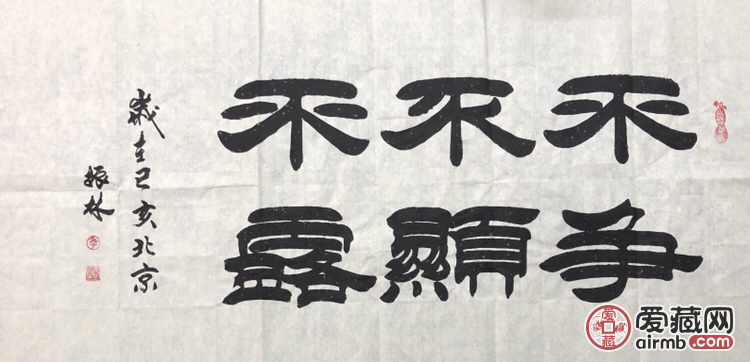 不争
不顯
不露
歲在己亥北京
振林
爱藏
爱藏网
airmb.com